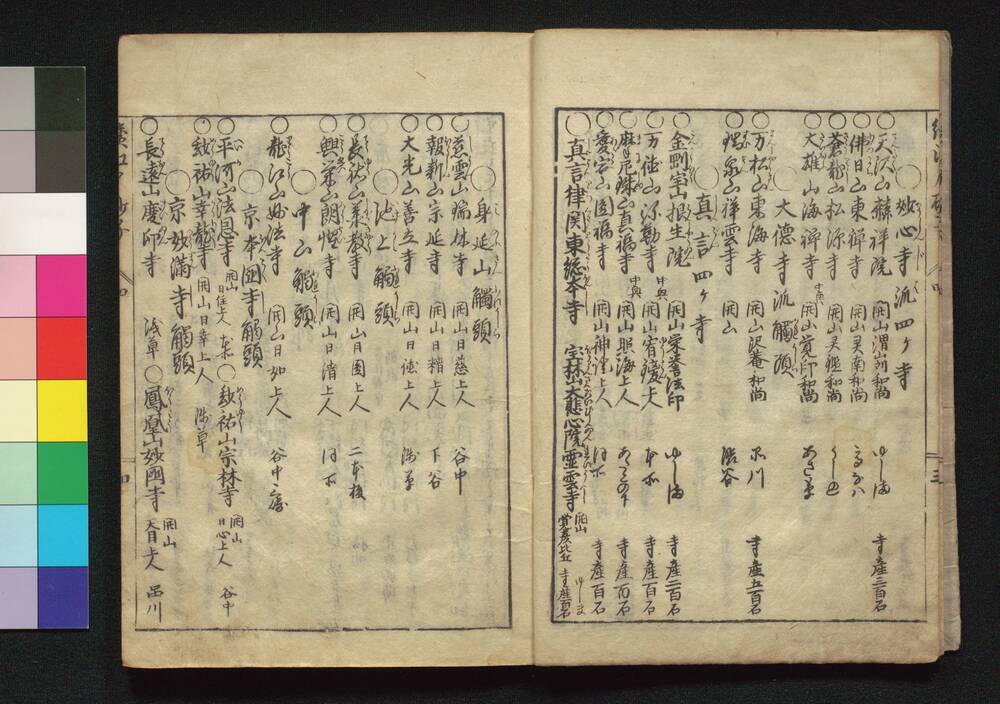 妙心寺派四ヶ寺
天沢山麟祥院 開山渭川和尚 ゆしま 寺産三百石
佛日山東禅寺 開山霊南和尚 たかなハ
蒼龍山松源寺 開山霊極和尚 うしこめ
大雄山海禅寺 開山覚印和尚 あさ草
大徳寺派觸頭
万松山東海寺 開山沢庵和尚 品川 寺産五百石
瑞泉山祥雲寺 開山 渋谷
真言四ヶ寺
金剛宝山根生院 開山栄誉法印 ゆしま 寺産二百石
万徳山弥勒寺 中興 開山宥鑁上人 本所 寺産百石
摩尼珠山真福寺 中興 開山照海上人 あたこの下 寺産百石
愛宕山圓福寺 開山神證上人 同所 寺産百石
真言律関東総本寺 宝林山大悲心院霊雲寺 開山覚彦比丘 ゆしま 寺産百石
身延山觸頭
慈雲山瑞林寺 開山日慈上人 谷中
報新山宗延寺 開山日精上人 下谷
大光山善立寺 開山日徳上人 浅草
池上觸頭
長祐山承教寺 開山日圓上人 二本榎
興榮山朗惺寺 開山日惺上人 同所
中山觸頭
龍江山妙法寺 開山日如上人 谷中三崎
京本圀寺觸頭
平河山法恩寺 開山日住上人 本所
妙祐山宗林寺 開山日心上人 谷中
妙祐山幸龍寺 開山日幸上人 浅草
京妙満寺觸頭
長遠山慶印寺 浅草
鳳凰山妙國寺 開山天目上人 品川